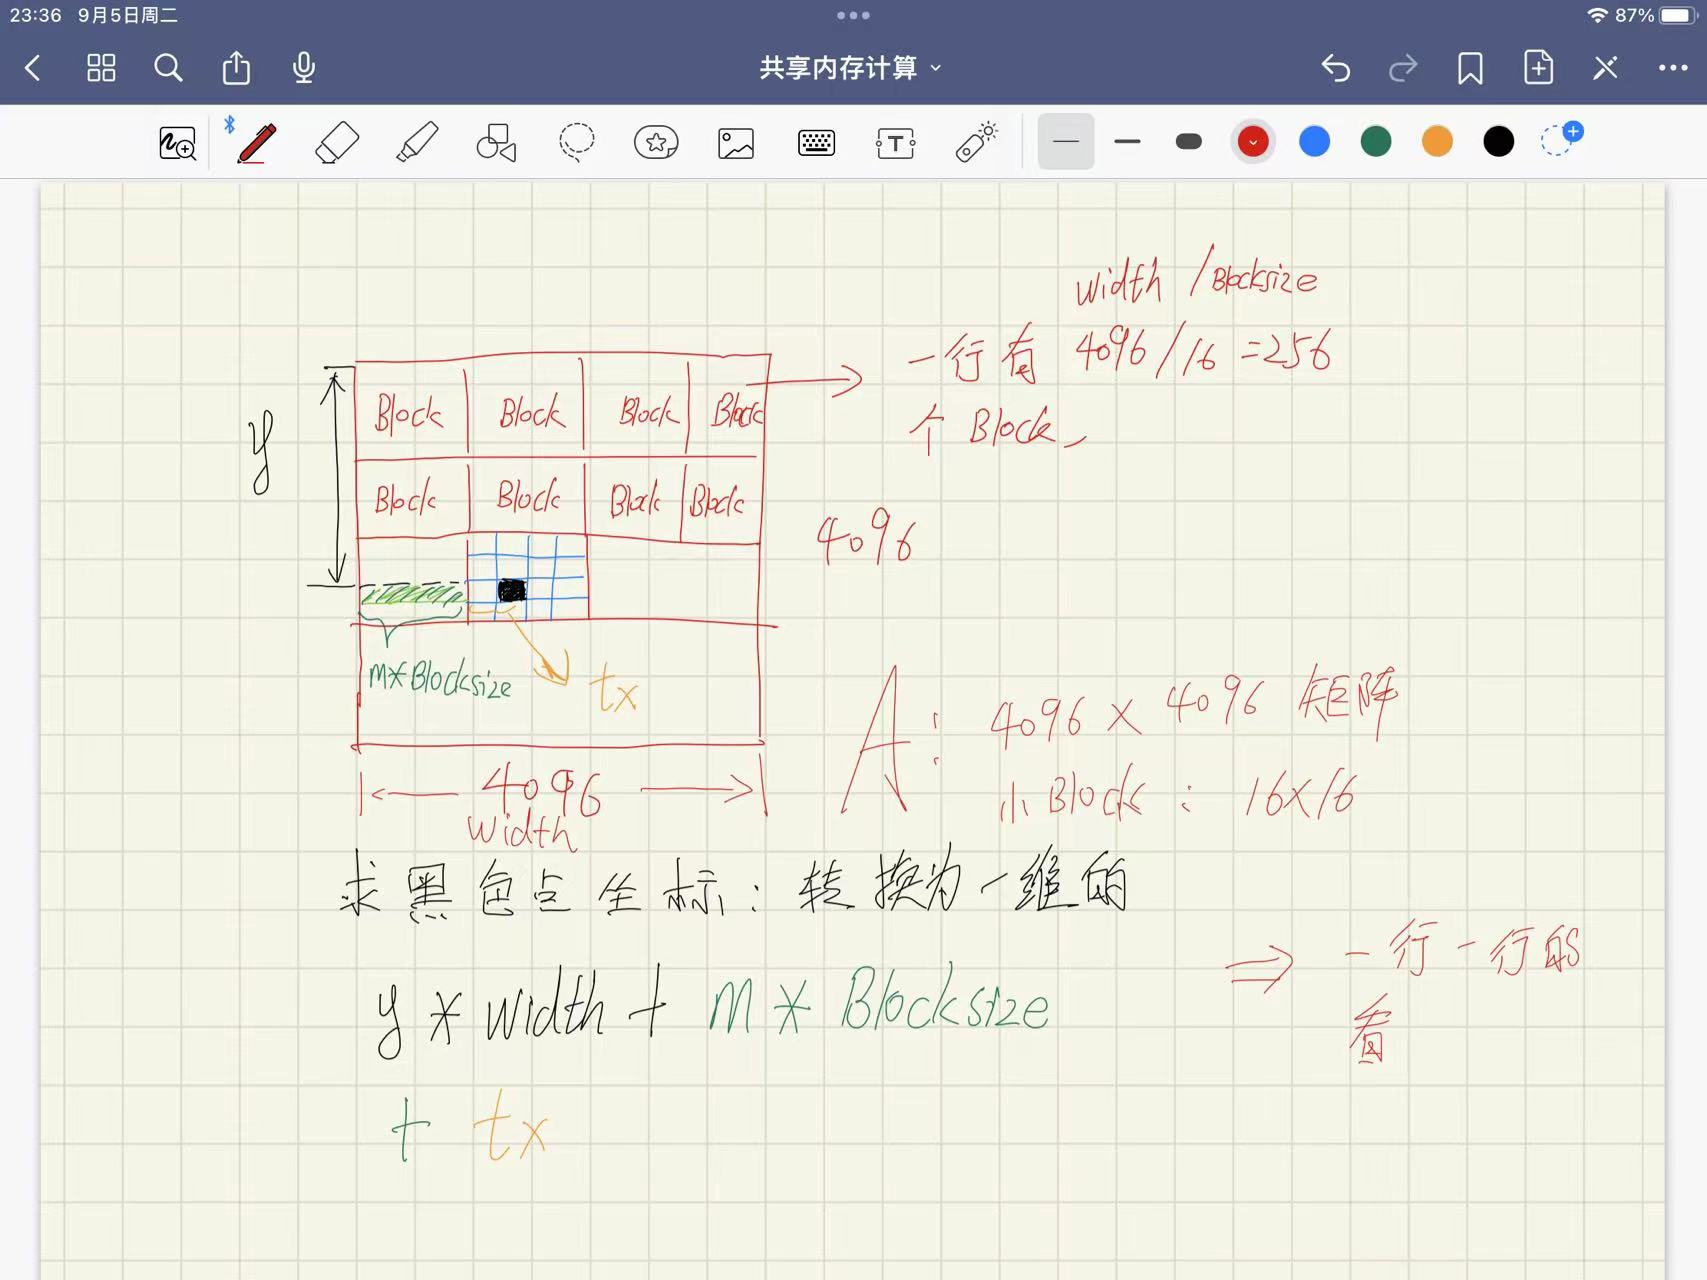 23:36 9月5日周二
87%
共享内存计算
width / Blocksize
一行有 4096 / 16 = 256
个 Block
Block Block Block Block
Block Block Block Block
y
4096
m*Blocksize
tx
A: 4096 × 4096 矩阵
小Block : 16×16
4096
width
求黑色点坐标: 转换为一维的
y * width + m * Blocksize
+ tx
⇒ 一行一行的
看